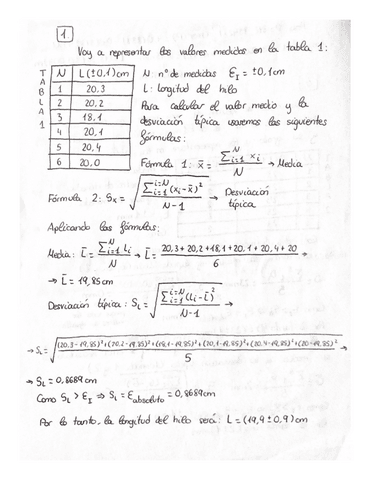 1
Voy a representar los valores medidos en la tabla 1:
TABLA 1
N L(±0,1)cm
1 20,3
2 20,2
3 18,1
4 20,1
5 20,4
6 20,0
N: nº de medidas Ɛ_I = ±0,1cm
L: Longitud del hilo
Para calcular el valor medio y la
desviación típica usaremos las siguientes
fórmulas:
Fórmula 1: x̄ = ∑_{i=1}^{N} x_i / N → Media
Fórmula 2: S_x = √(∑_{i=1}^{i=N} (x_i - x̄)² / N-1) → Desviación
típica
Aplicando las fórmulas:
Media: L̄ = ∑_{i=1}^{N} L_i / N → L̄ = 20,3+20,2+18,1+20,1+20,4+20 / 6 →
→ L̄ = 19,85cm
Desviación típica: S_L = √(∑_{i=1}^{i=N} (L_i - L̄)² / N-1) →
→ S_L = √((20,3-19,85)²+(20,2-19,85)²+(18,1-19,85)²+(20,1-19,85)²+(20,4-19,85)²+(20-19,85)² / 5) →
→ S_L = 0,8689cm
Como S_L > Ɛ_I ⇒ S_L = Ɛ_absoluto = 0,8689cm
Por lo tanto, la longitud del hilo será: L = (19,9 ± 0,9) cm